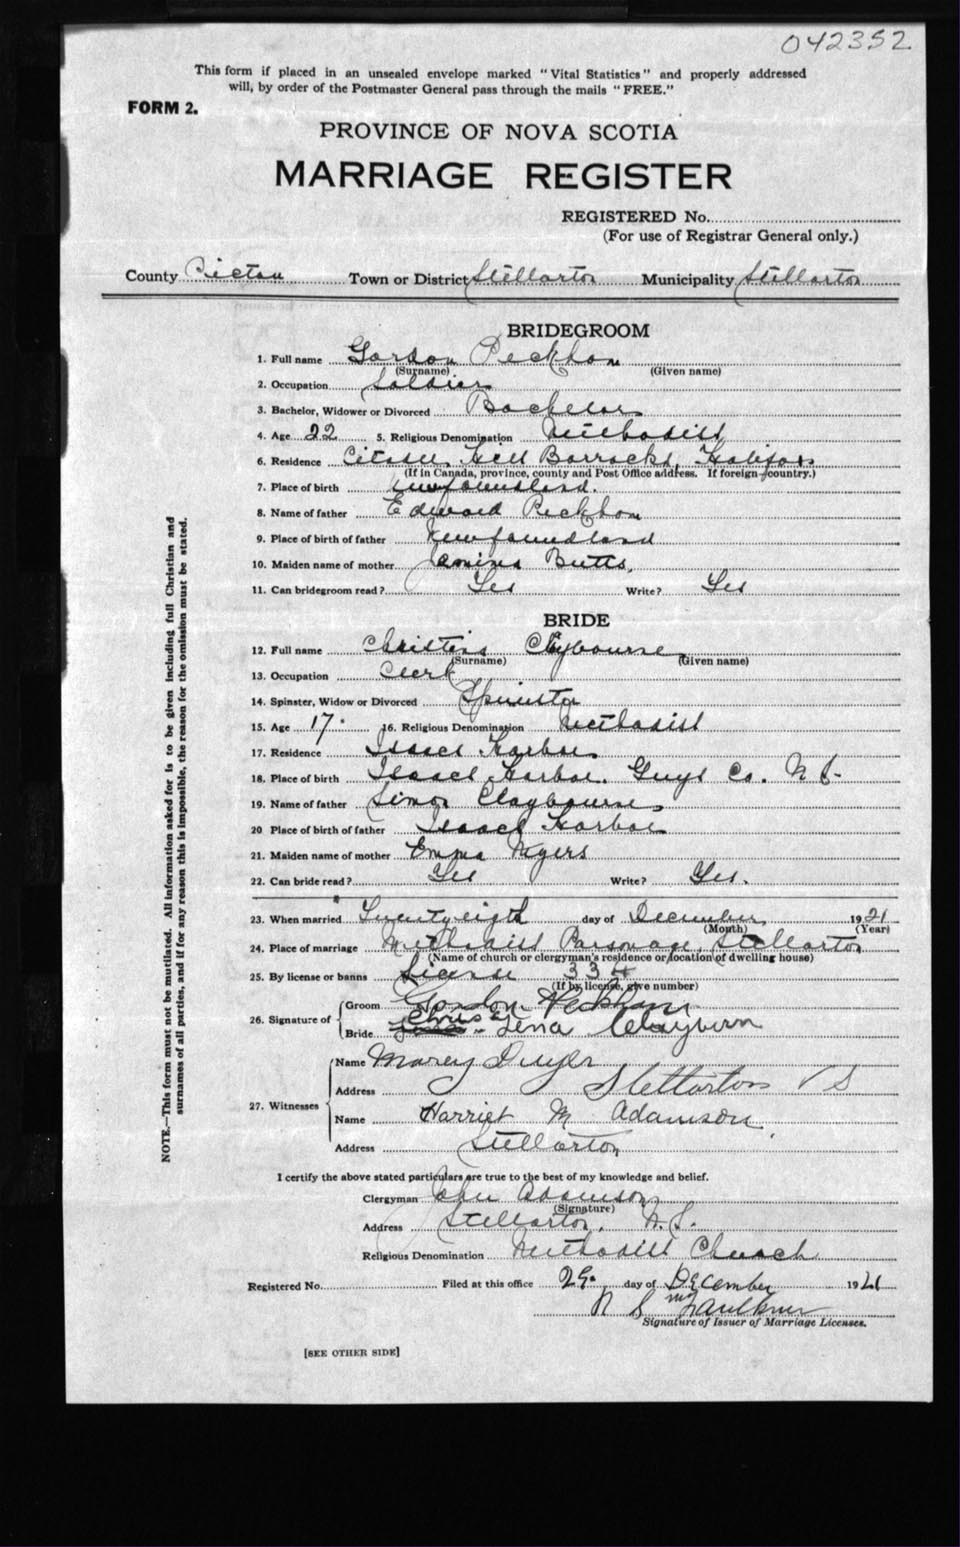 042352
This form if placed in an unsealed envelope marked "Vital Statistics" and properly addressed
will, by order of the Postmaster General pass through the mails "FREE."
FORM 2.
PROVINCE OF NOVA SCOTIA
MARRIAGE REGISTER
REGISTERED No.
(For use of Registrar General only.)
County Pictou Town or District Stellarton Municipality Stellarton
BRIDEGROOM
1. Full name Gordon Peckham
(Surname) (Given name)
2. Occupation Soldier
3. Bachelor, Widower or Divorced Bachelor
4. Age 22 5. Religious Denomination Methodist
6. Residence Citadel Hill Barracks, Halifax
(If in Canada, province, county and Post Office address. If foreign-country.)
7. Place of birth Newfoundland.
8. Name of father Edward Peckham
9. Place of birth of father Newfoundland
10. Maiden name of mother Butts,
11. Can bridegroom read? Yes Write? Yes
BRIDE
12. Full name Christina Claybourne
(Surname) (Given name)
13. Occupation Clerk
14. Spinster, Widow or Divorced Spinster
15. Age 17. 16. Religious Denomination Methodist
17. Residence Isaacs Harbor
18. Place of birth Isaacs Harbor. Guys Co. N S-
19. Name of father Simon Claybourne
20 Place of birth of father Isaacs Harbor
21. Maiden name of mother Emma Myers
22. Can bride read? Yes Write? Yes.
23. When married Twentyeigth day of December 1921
(Month) (Year)
24. Place of marriage Methodist Parsonage, Stellarton
(Name of church or clergyman's residence or location of dwelling house)
25. By license or banns License 334
(If by license, give number)
26. Signature of Groom Gordon Peckham
Bride Chris Lena Clayburn
27. Witnesses Name Marey Dwyer
Address Stellarton N S
Name Harriet M Adamson.
Address Stellarton
I certify the above stated particulars are true to the best of my knowledge and belief.
Clergyman John Adamson
(Signature)
Address Stellarton, N.S.
Religious Denomination Methodist Church
Registered No. Filed at this office 29. day of December 1921
N S McFaulkner
Signature of Issuer of Marriage Licenses.
[SEE OTHER SIDE]
NOTE.—This form must not be mutilated. All information asked for is to be given including full Christian and
surnames of all parties, and if for any reason this is impossible, the reason for the omission must be stated.